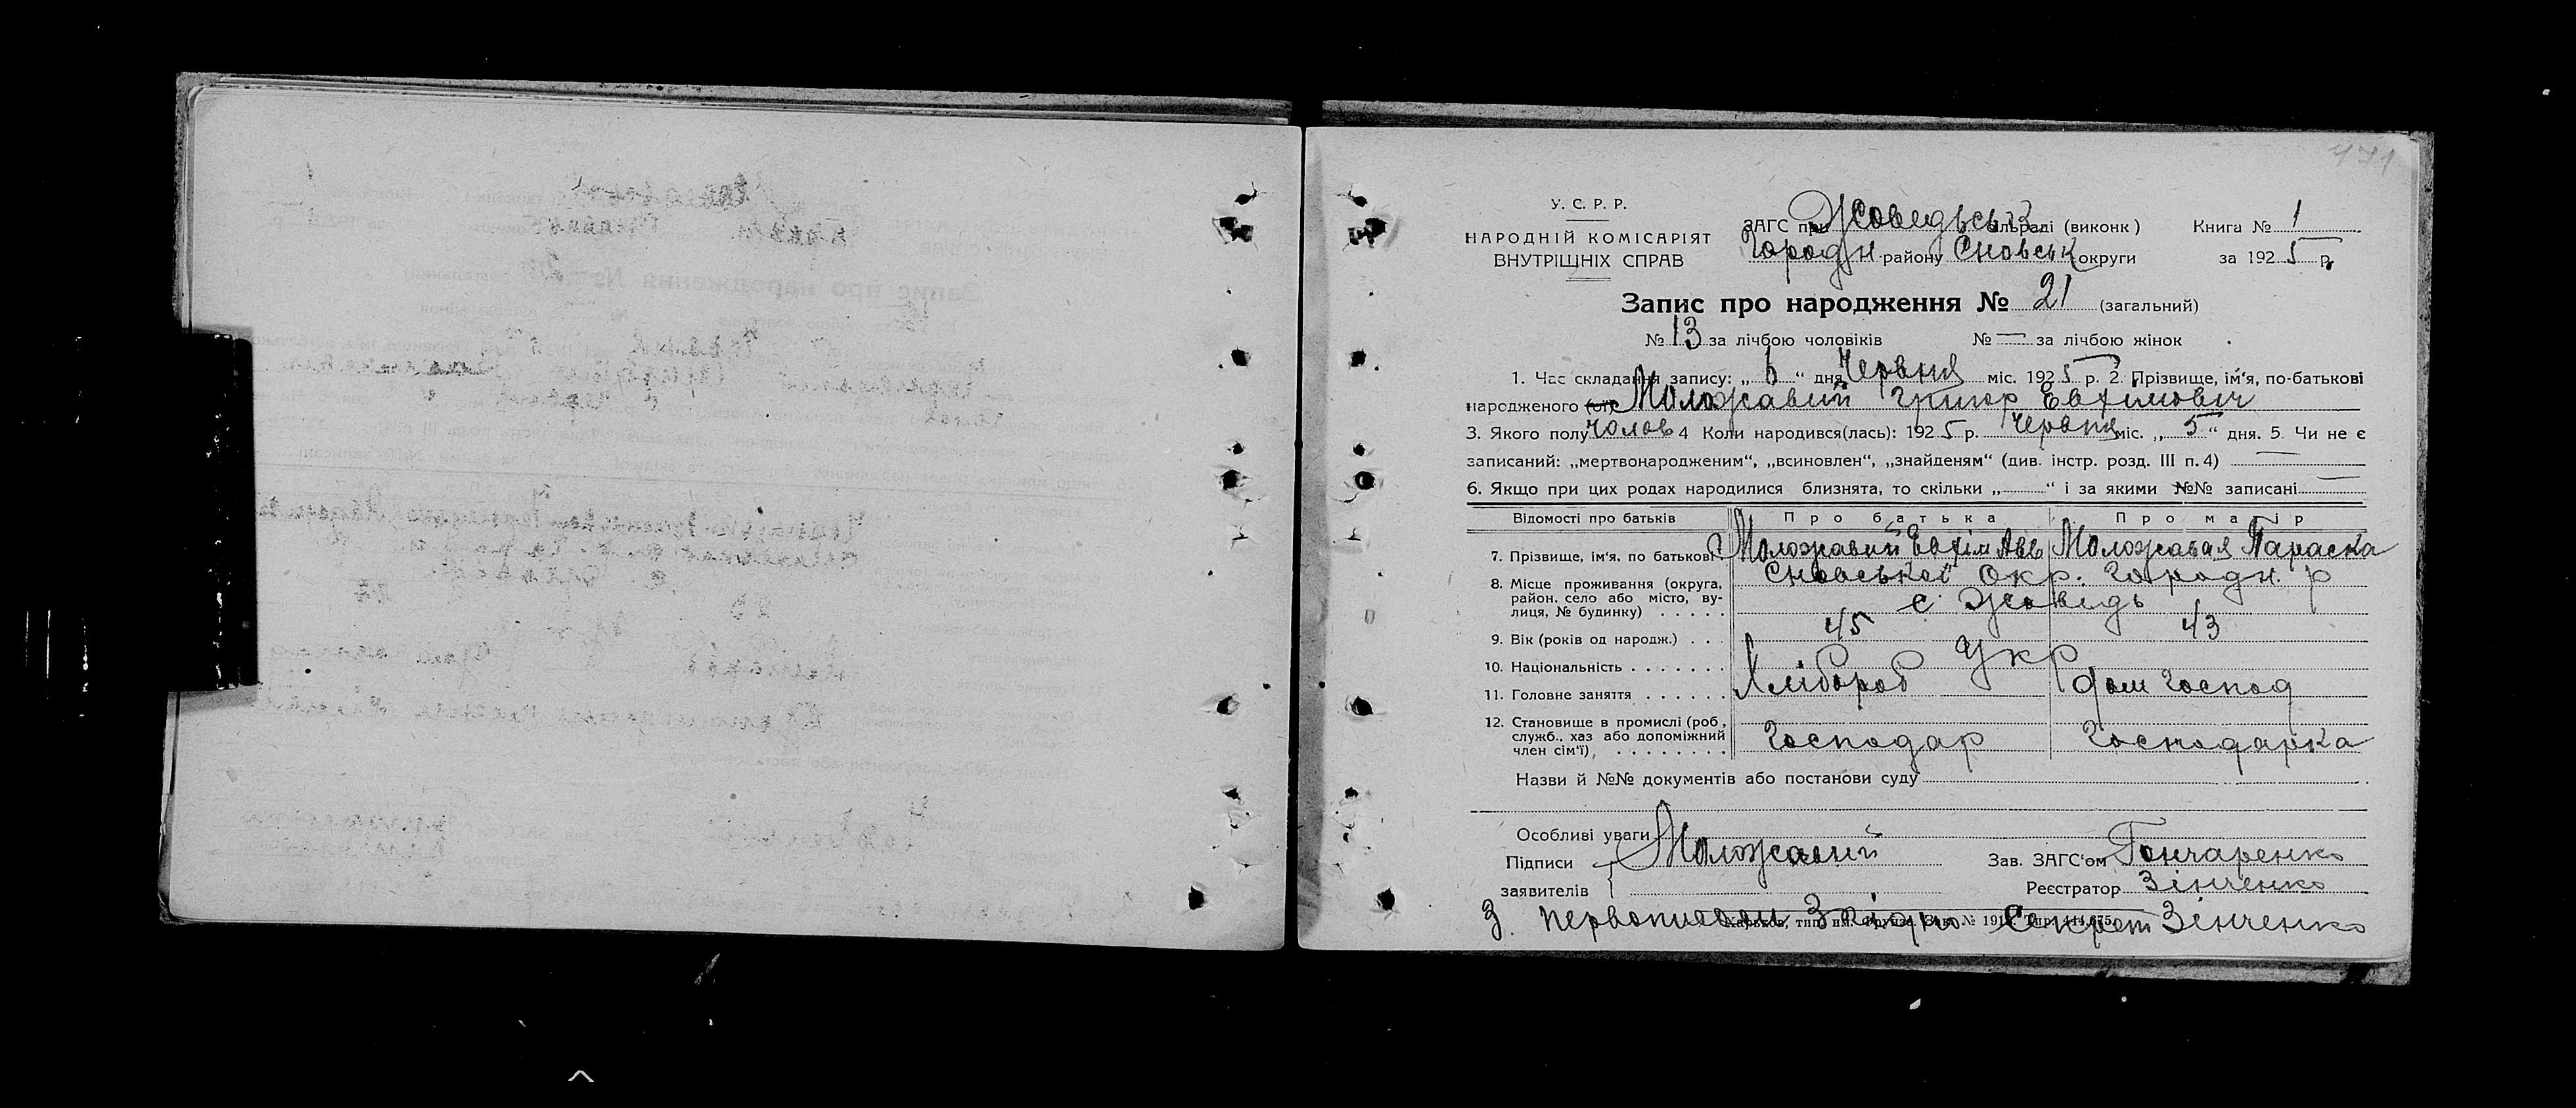 471
У. С. Р. Р.
НАРОДНІЙ КОМІСАРІЯТ
ВНУТРІШНІХ СПРАВ
ЗАГС при Жоведьськ сільраді (виконк) Книга № 1
Городн. району Сновськ округи за 1925 р.
Запис про народження № 21 (загальний)
№ 13 за лічбою чоловіків № — за лічбою жінок
1. Час складання запису: „6“ дня Червня міс. 1925 р. 2. Прізвище, ім'я, по-батькові
народженого Моложавий Григор Евхимович
3. Якого полу Чолов 4 Коли народився(лась): 1925 р. Червня міс. „5“ дня. 5. Чи не є
записаний: „мертвонародженим“, „всиновлен“, „знайденям“ (див. інстр. розд. III п. 4) —
6. Якщо при цих родах народилися близнята, то скільки „ “ і за якими №№ записані —
Відомості про батьків Про батька Про матір
7. Прізвище, ім'я, по батькові Моложавий Евхім Авв Моложавая Параска
8. Місце проживання (округа, район, село або місто, вулиця, № будинку) Сновської Окр. Городн. р
с. Жоведь
9. Вік (років од народж.) 45 43
10. Національність Укр
11. Головне заняття Хлібороб дом господ
12. Становище в промислі (роб, служб., хаз або допоміжний член сім'ї) Господар Господарка
Назви й №№ документів або постанови суду
Особливі уваги
Підписи заявителів Моложавий
Зав. ЗАГС'ом Гончаренко
Реєстратор Зінченко
З первописом Згідно Секрет Зінченко